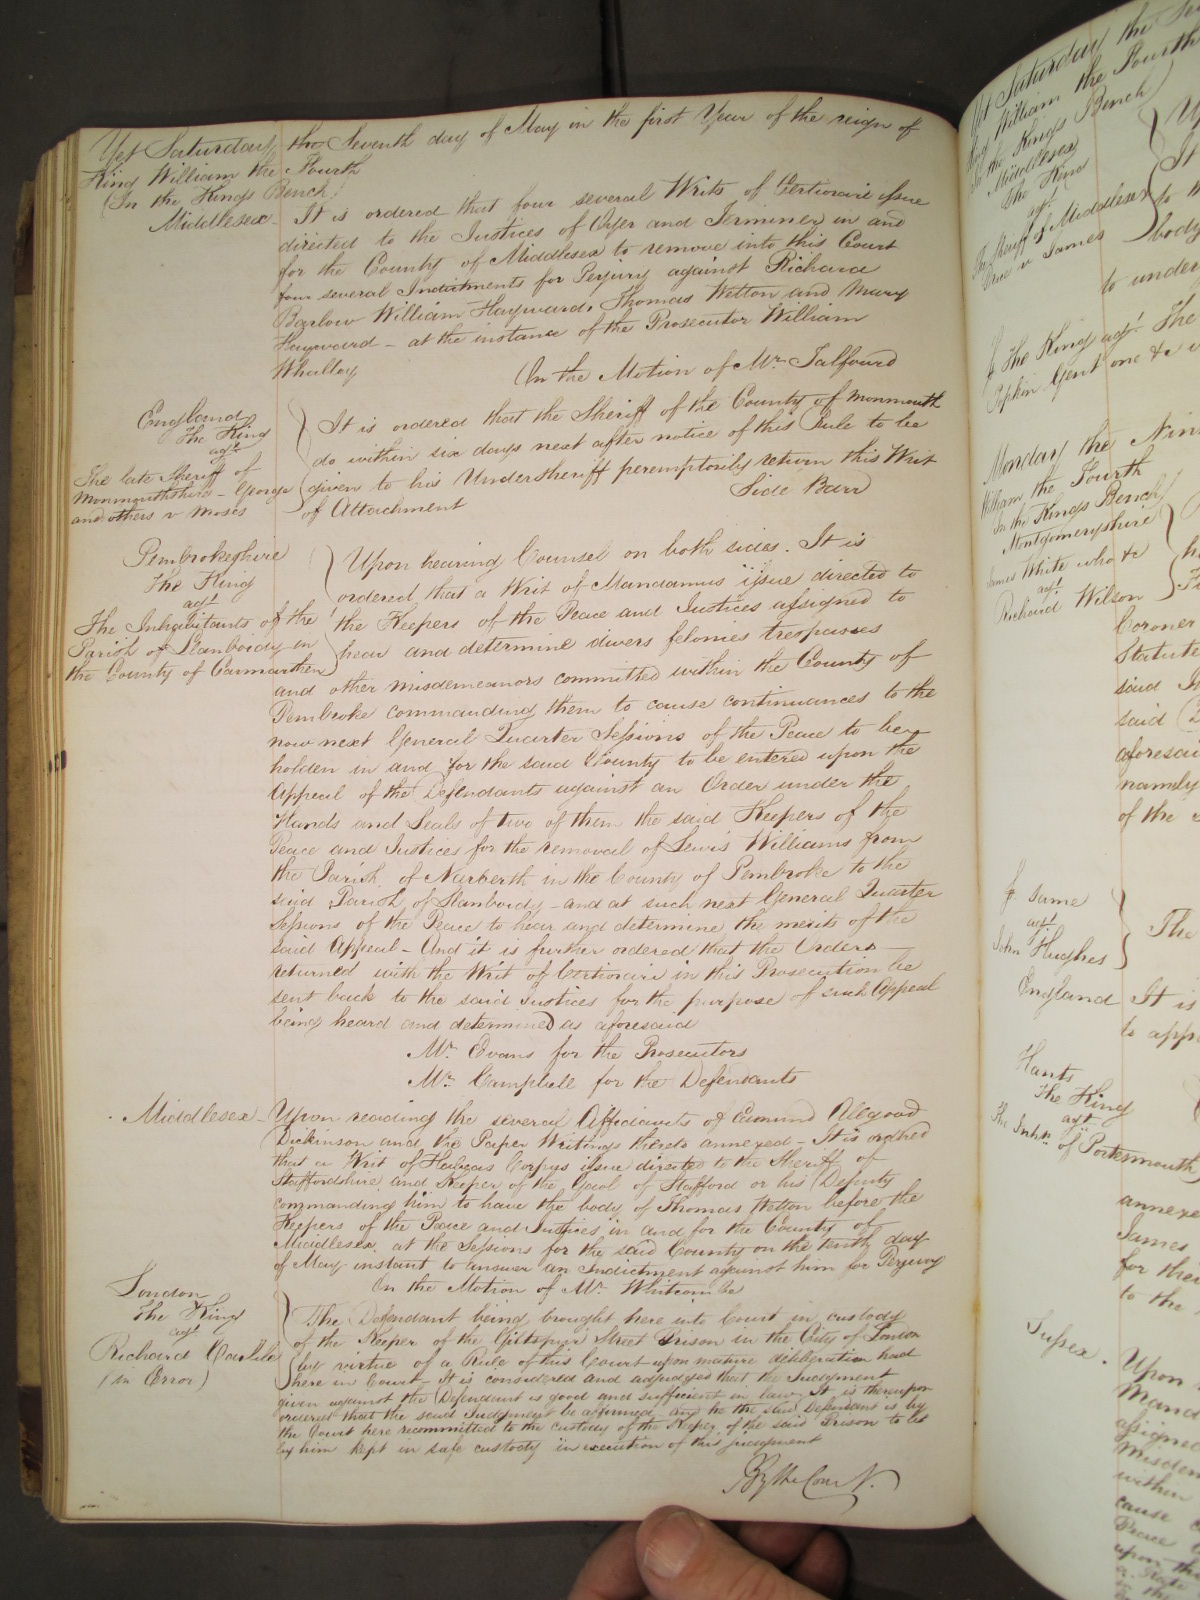 Yet Saturday the Seventh day of May in the first Year of the reign of
King William the Fourth
(In the Kings Bench)
Middlesex It is ordered that four several Writs of Certiorari issue
directed to the Justices of Oyer and Terminer in and
for the County of Middlesex to remove into this Court
four several Indictments for Perjury against Richard
Barlow William Hayward Thomas Wetton and Mary
Hayward – at the instance of the Prosecutor William
Whalley
On the Motion of Mr. Talfourd
England
The King
agt
The late Sheriff of
Monmouthshire – George
and others v Moses
It is ordered that the Sheriff of the County of Monmouth
do within six days next after notice of this Rule to be
given to his Undersheriff peremptorily return this Writ
of Attachment
Side Barr
Pembrokeshire
The King
agt
The Inhabitants of the
Parish of Llanboidy in
the County of Carmarthen
Upon hearing Counsel on both sides. It is
ordered that a Writ of Mandamus issue directed to
the Keepers of the Peace and Justices assigned to
hear and determine divers felonies trespasses
and other misdemeanors committed within the County of
Pembroke commanding them to cause continuances to the
now next General Quarter Sessions of the Peace to be
holden in and for the said County to be entered upon the
Appeal of the Defendants against an Order under the
Hands and Seals of two of them the said Keepers of the
Peace and Justices for the removal of Lewis Williams from
the Parish of Narberth in the County of Pembroke to the
said Parish of Llanboidy – and at such next General Quarter
Sessions of the Peace to hear and determine the merits of the
said Appeal – And it is further ordered that the Orders
returned with the Writ of Certiorari in this Prosecution be
sent back to the said Justices for the purpose of such Appeal
being heard and determined as aforesaid
Mr. Evans for the Prosecutors
Mr. Campbell for the Defendants
Middlesex – Upon reading the several Affidavits of Edmund Allgood
Dickinson and the Paper Writings thereto annexed – It is ordered
that a Writ of Habeas Corpus issue directed to the Sheriff of
Staffordshire and Keeper of the Gaol of Stafford or his Deputy
commanding him to have the body of Thomas Wetton before the
Keepers of the Peace and Justices in and for the County of
Middlesex at the Sessions for the said County on the tenth day
of May instant to answer an Indictment against him for Perjury
On the Motion of Mr. Whitcombe
London
The King
agt
Richard Carlile
(in Error)
The Defendant being brought here into Court in custody
of the Keeper of the Giltspur Street Prison in the City of London
by virtue of a Rule of this Court upon mature deliberation had
here in Court – It is considered and adjudged that the Judgment
given against the Defendant is good and sufficient in law. It is thereupon
ordered that the said Judgment be affirmed and he the said Defendant is by
the Court here recommitted to the custody of the Keeper of the said Prison to be
by him kept in safe custody in execution of this judgment
By the Court
Yet Saturday the
King William the Fourth
In the Kings Bench
Middlesex
The King
agt
The Sheriff of Middlesex
v James
It
to
body
to under
The King agt. The
Gent one &c
Monday the Nin
William the Fourth
In the Kings Bench
Montgomeryshire
James White who &c
agt
Richard Wilson
Coroner
Statute
said
said
aforesai
namely
of the
same
agt
John Hughes
The
England It is
to appe
Hants
The King
agt
The Inhts of Portsmouth
annexe
James
for thei
to the
Sussex.
Upon
Mand
assigned
Misdem
within
cause
Peace
upon the